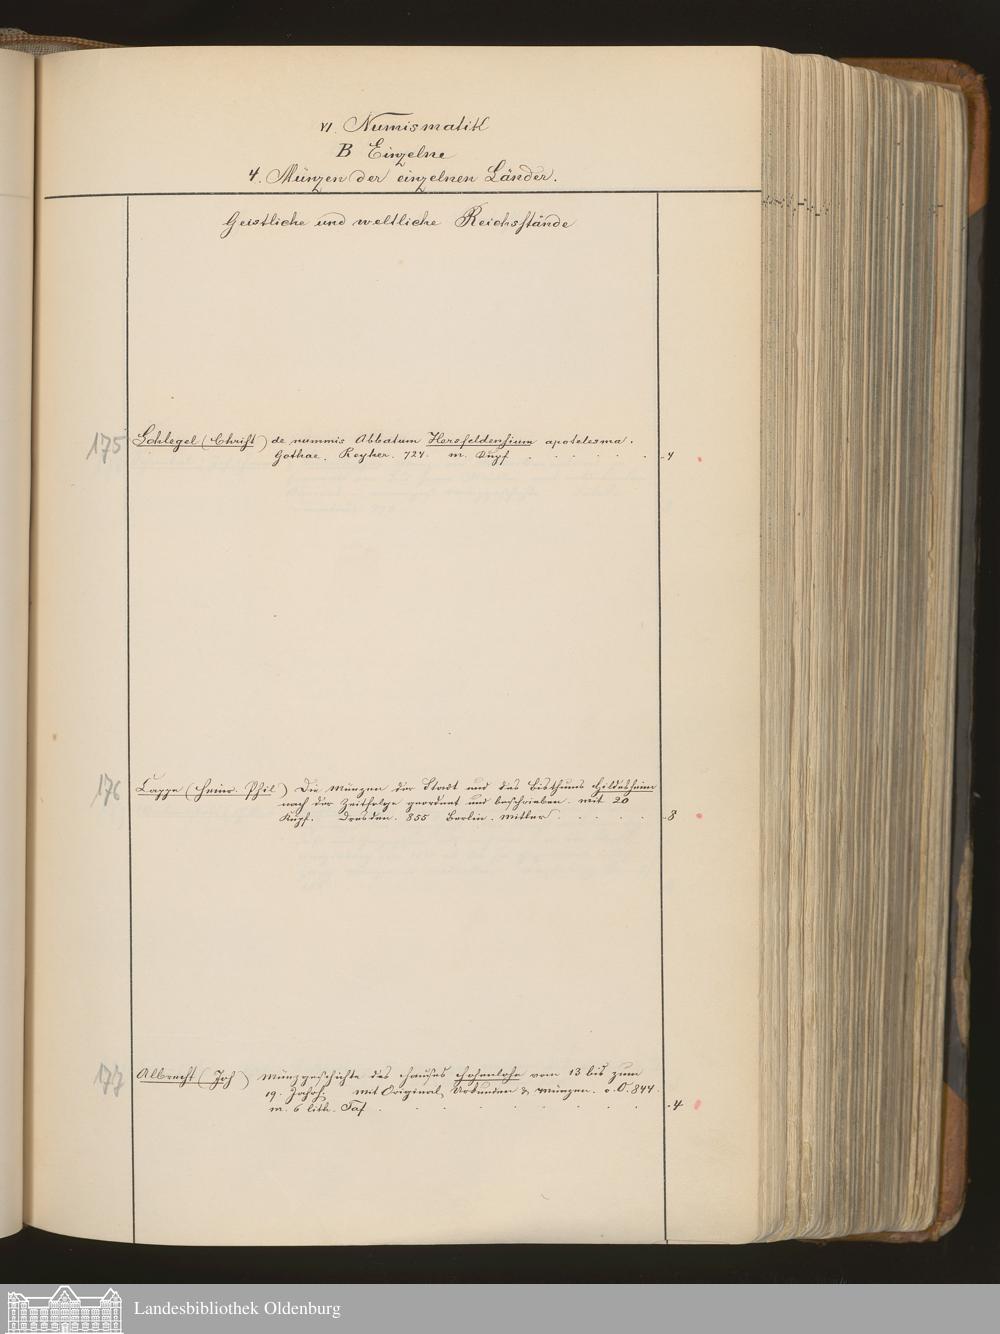 VI. Numismatik
B Einzelne
4. Münzen der einzelnen Länder.
Geistliche und weltliche Reichsstände
175 Schlegel (Christ) de nummis Abbatum Hersfeldensium apotelesma.
Gothae. Reyher. 724. m. Kupf . . . . . . 4
176 Cappe (Heinr. Phil) Die Münzen der Stadt und des Bisthums Hildesheim
nach der Zeitfolge geordnet und beschrieben. mit 20
Kupf. Dresden. 855 Berlin. Mittler . . . . . . 8
177 Albrecht (Joh) Münzgeschichte des Hauses Hohenlohe vom 13 bis zum
19. Jahrh. mit Original Urkunden & Münzen. o. O. 844.
m. 6 lith. Taf . . . . . . . . . 4
Landesbibliothek Oldenburg